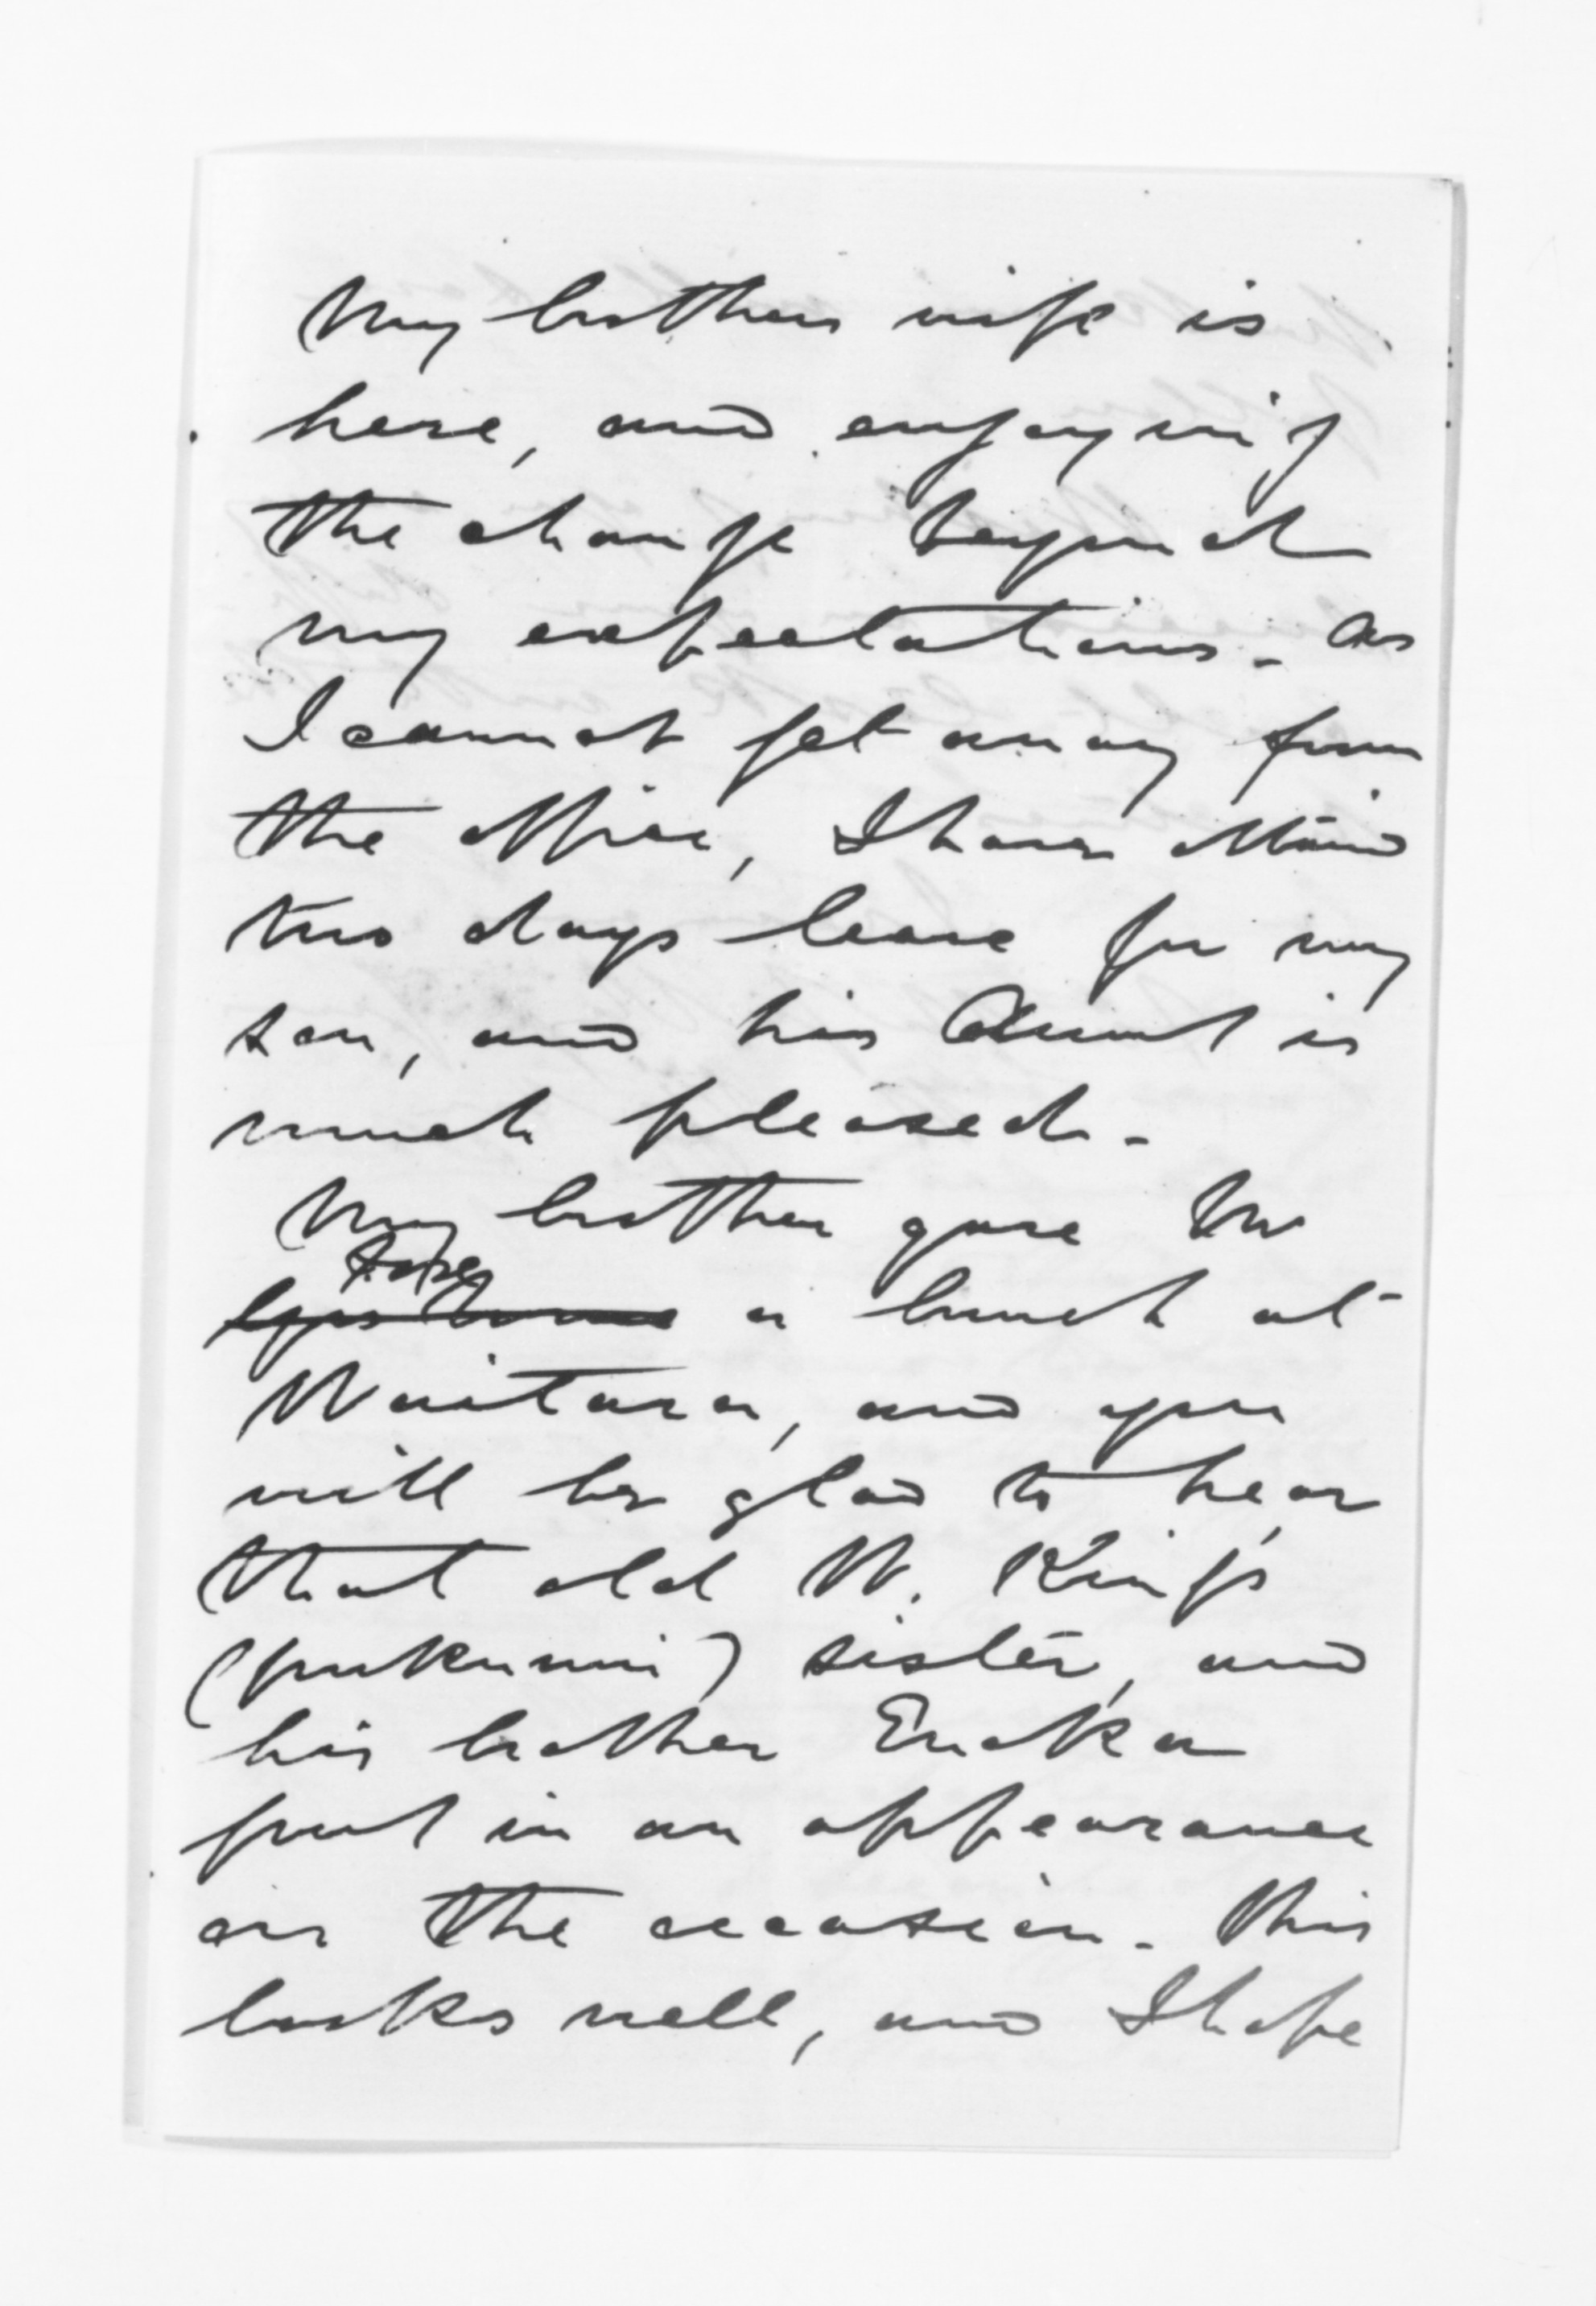 My brothers wife is
here, and enjoying
the change beyond
my expectations. As
I cannot get away from
the office, I have obtained
two days leave for my
son, and his Aunt is
much pleased.
My brother gave Mr
a lunch at
Waitara, and you
will be glad to hear
that old W. Kings
sister, and
his brother Eruka
put in an appearance
on the occasion. This
looks well, and I hope